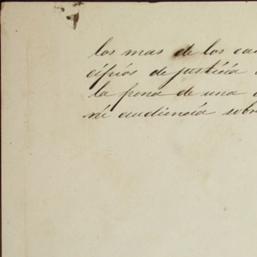 los mas de los cau
cipios de justicia
la pena de una
ni audiencia sobr